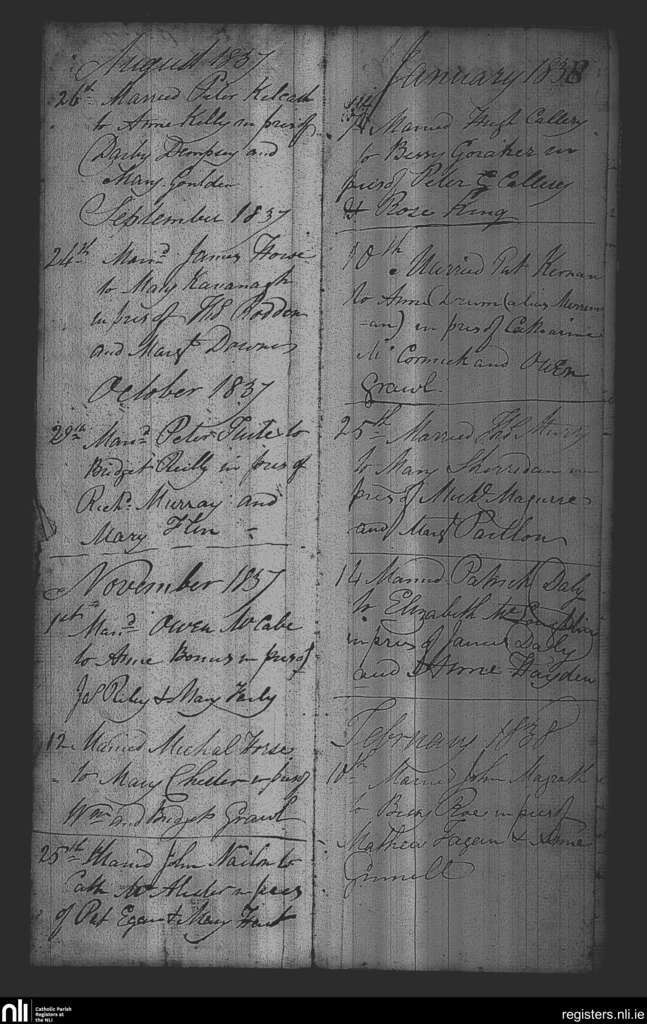 August 1837
26th Married Peter Kilcash
to Anne Kelly in pres of
Darby Dempsey and
Mary Goulden
September 1837
24th Marrd James House
to Mary Kavanagh
in pres of Ths Rodden
and Margt Downes
October 1837
29th Marrd Peter Tuite to
Bridget Reilly in pres of
Richd Murray and
Mary Flin
November 1837
1st Marrd Owen McCabe
to Anne in pres of
Js Riley & Mary
12 Married Michal
to Mary Cheever in pres of
Wm and Bridget Grawl
25th Maried John to
Cath in pres
of Pat Egan & Mary
January 1838
7th Married Hugh Callery
to Bessy in
pres of Peter Callery
& Rose King
10th Married Pat Kernan
to Anne Drum (alias
) in pres of Catharine
McCormick and Owen
Grawl.
25th Married Ths
to Mary Sherridan in
pres of Michl Maguire
and Margt
14 Married Patrick Daly
to Elizabeth
in pres of James Daly
and Anne Hayden
February 1838
10th Married John Magrath
to Bessy Roe in pres of
Mathew Fagan & Anne
Ginnell
nli
Catholic Parish
Registers at
the NLI
registers.nli.ie